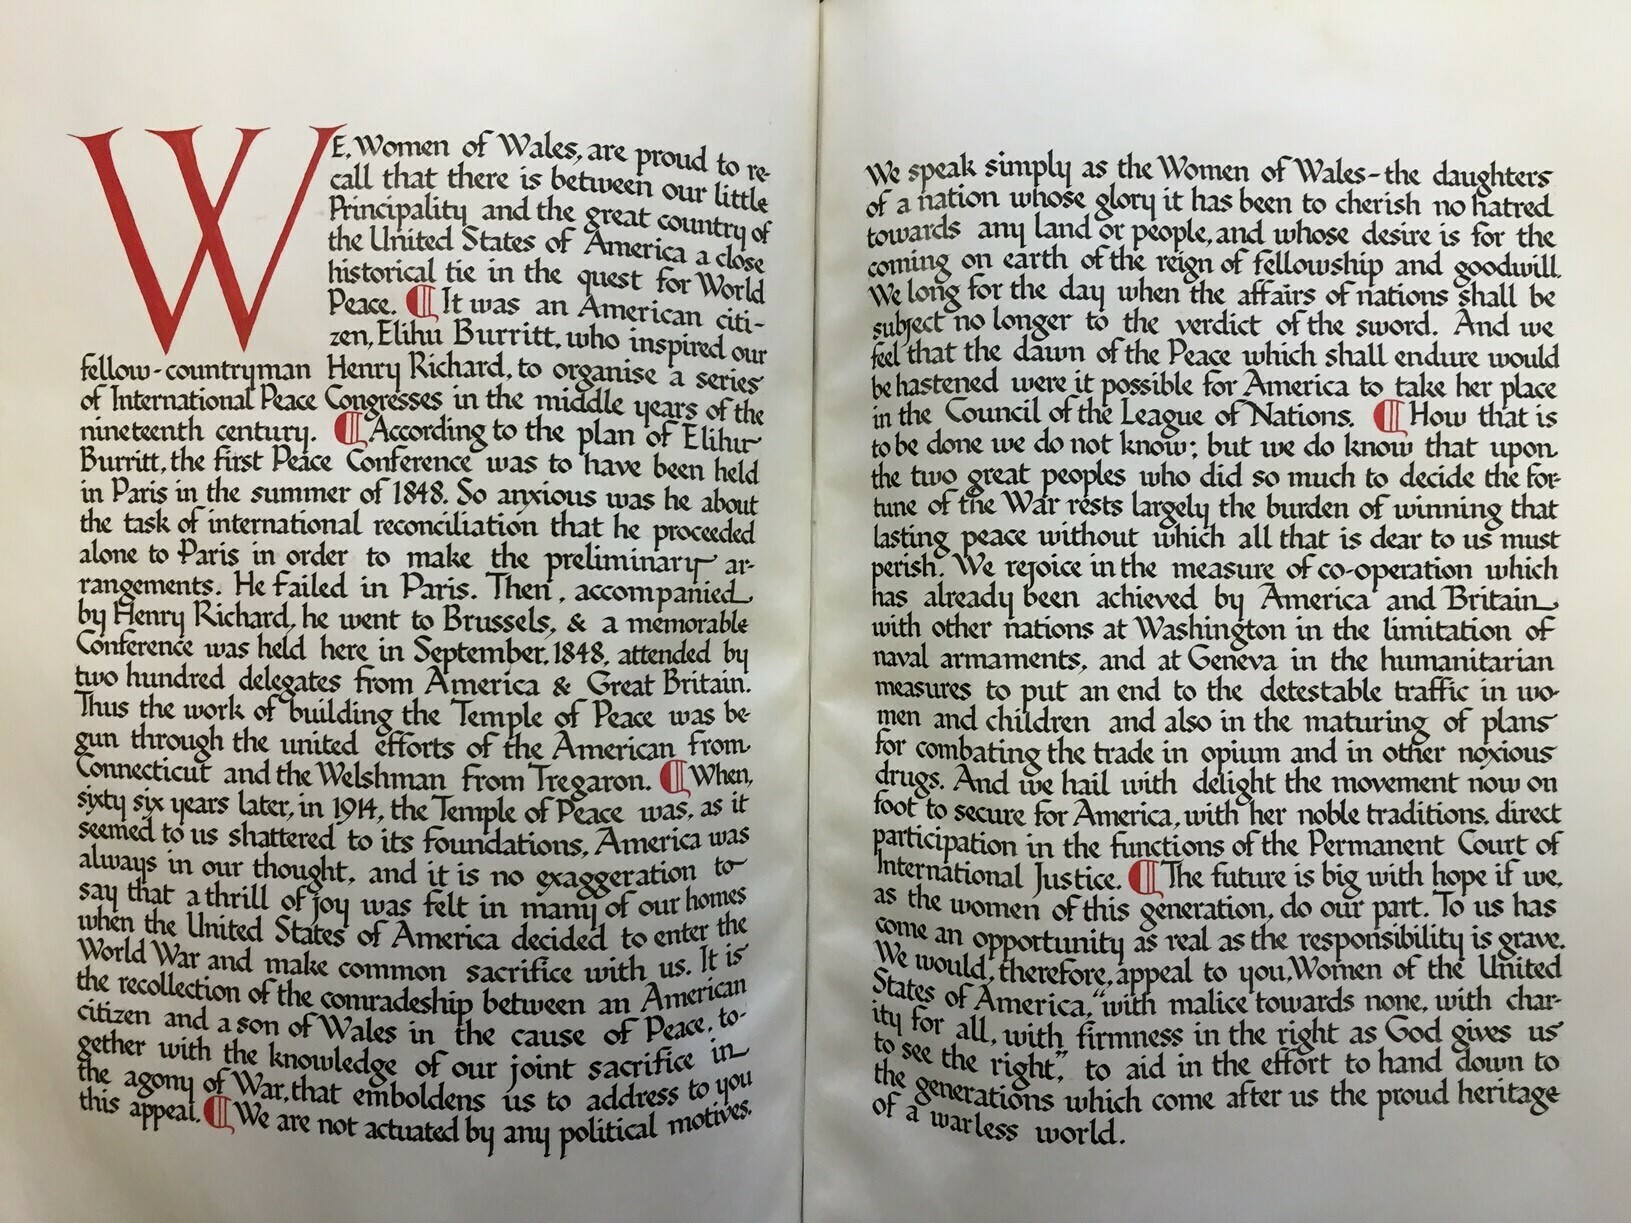 WE, Women of Wales, are proud to re-
call that there is between our little
Principality and the great country of
the United States of America a close
historical tie in the quest for World
Peace. ¶ It was an American citi-
zen, Elihu Burritt, who inspired our
fellow-countryman Henry Richard, to organise a series
of International Peace Congresses in the middle years of the
nineteenth century. ¶ According to the plan of Elihu
Burritt, the first Peace Conference was to have been held
in Paris in the summer of 1848. So anxious was he about
the task of international reconciliation that he proceeded
alone to Paris in order to make the preliminary ar-
rangements. He failed in Paris. Then, accompanied
by Henry Richard, he went to Brussels, & a memorable
Conference was held here in September, 1848, attended by
two hundred delegates from America & Great Britain.
Thus the work of building the Temple of Peace was be-
gun through the united efforts of the American from
Connecticut and the Welshman from Tregaron. ¶ When,
sixty six years later, in 1914, the Temple of Peace was, as it
seemed to us shattered to its foundations, America was
always in our thought, and it is no exaggeration to
say that a thrill of joy was felt in many of our homes
when the United States of America decided to enter the
World War and make common sacrifice with us. It is
the recollection of the comradeship between an American
citizen and a son of Wales in the cause of Peace, to-
gether with the knowledge of our joint sacrifice in
the agony of War, that emboldens us to address to you
this appeal. ¶ We are not actuated by any political motives.
We speak simply as the Women of Wales - the daughters
of a nation whose glory it has been to cherish no hatred
towards any land or people, and whose desire is for the
coming on earth of the reign of fellowship and goodwill.
We long for the day when the affairs of nations shall be
subject no longer to the verdict of the sword. And we
feel that the dawn of the Peace which shall endure would
be hastened were it possible for America to take her place
in the Council of the League of Nations. ¶ How that is
to be done we do not know; but we do know that upon
the two great peoples who did so much to decide the for-
tune of the War rests largely the burden of winning that
lasting peace without which all that is dear to us must
perish. We rejoice in the measure of co-operation which
has already been achieved by America and Britain
with other nations at Washington in the limitation of
naval armaments, and at Geneva in the humanitarian
measures to put an end to the detestable traffic in wo-
men and children and also in the maturing of plans
for combating the trade in opium and in other noxious
drugs. And we hail with delight the movement now on
foot to secure for America, with her noble traditions, direct
participation in the functions of the Permanent Court of
International Justice. ¶ The future is big with hope if we,
as the women of this generation, do our part. To us has
come an opportunity as real as the responsibility is grave.
We would, therefore, appeal to you, Women of the United
States of America, "with malice towards none, with char-
ity for all, with firmness in the right as God gives us
to see the right," to aid in the effort to hand down to
the generations which come after us the proud heritage
of a warless world.